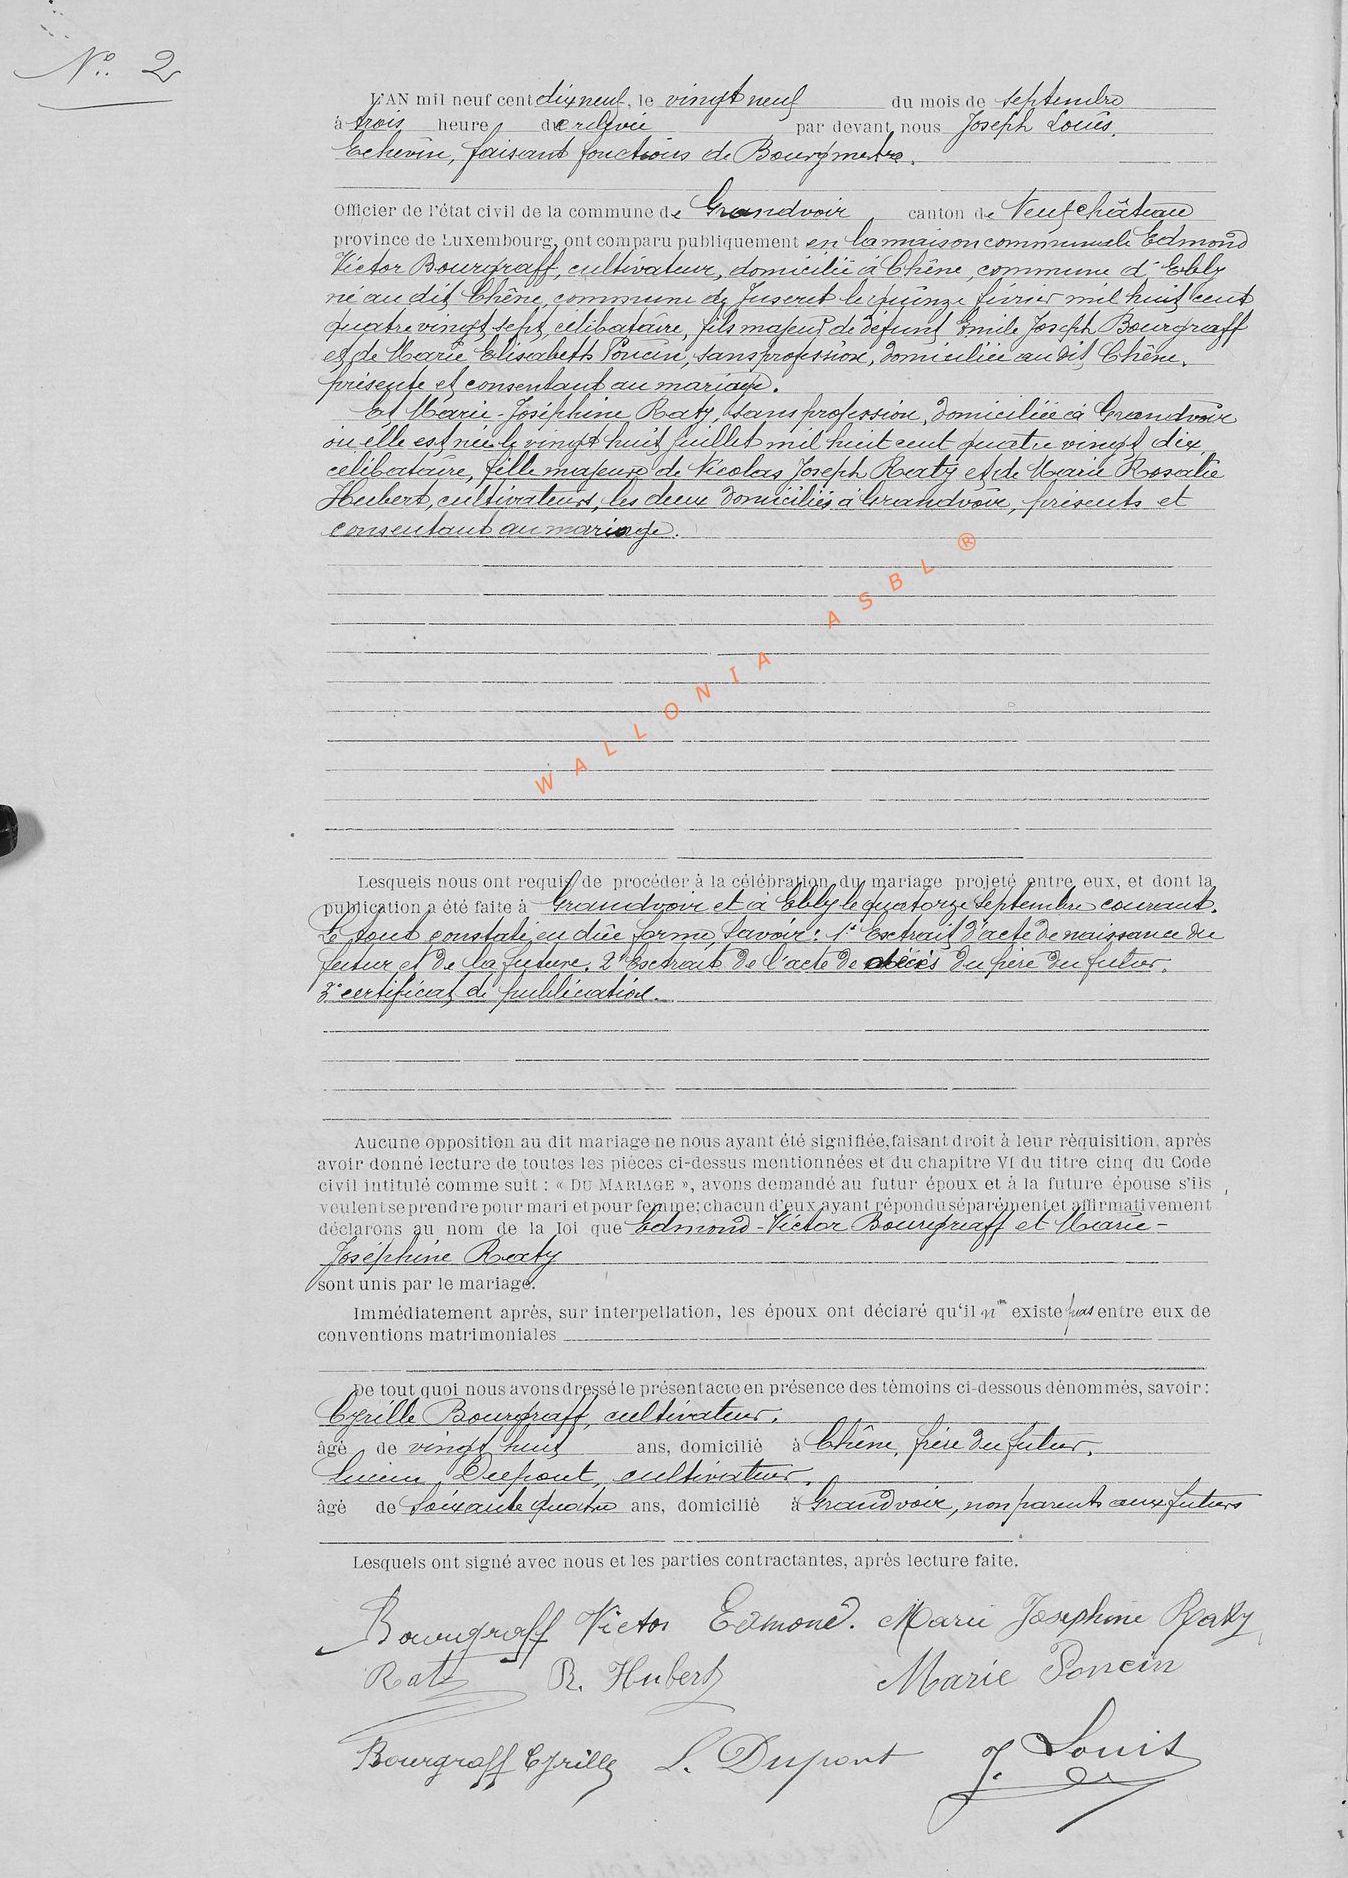 N° 2
L'AN mil neuf cent dix neuf, le vingt neuf du mois de septembre
à trois heure, de relevée par devant nous Joseph Louis,
Echevin, faisant fonctions de Bourgmestre.
Officier de l'état civil de la commune de Grandvoir canton de Neufchâteau
province de Luxembourg, ont comparu publiquement en la maison communale Edmond
Victor Bourgraff, cultivateur, domicilié à Chêne, commune d'Ebly
né au dit Chêne, commune de Juseret le quinze février mil huit cent
quatre vingt sept, célibataire, fils majeur de défunt Emile Joseph Bourgraff
et de Marie Elisabeth Poncin, sans profession, domiciliée au dit Chêne,
présente et consentant au mariage.
Et Marie-Joséphine Raty, sans profession, domiciliée à Grandvoir
où elle est née le vingt huit juillet mil huit cent quatre vingt dix,
célibataire, fille majeure de Nicolas Joseph Raty et de Marie Rosalie
Hubert, cultivateurs, les deux domiciliés à Grandvoir, présents et
consentant au mariage.
WALLONIA ASBL ®
Lesquels nous ont requis de procéder à la célébration du mariage projeté entre eux, et dont la
publication a été faite à Grandvoir et à Ebly le quatorze septembre courant.
Le tout constaté en due forme, savoir: 1° Extrait d'acte de naissance du
futur et de la future. 2° Extrait de l'acte de décès du père du futur.
3° certificat de publication.
Aucune opposition au dit mariage ne nous ayant été signifiée, faisant droit à leur réquisition, après
avoir donné lecture de toutes les pièces ci-dessus mentionnées et du chapitre VI du titre cinq du Code
civil intitulé comme suit : « DU MARIAGE », avons demandé au futur époux et à la future épouse s'ils
veulent se prendre pour mari et pour femme; chacun d'eux ayant répondu séparément et affirmativement
déclarons au nom de la loi que Edmond-Victor Bourgraff et Marie-
Joséphine Raty
sont unis par le mariage.
Immédiatement après, sur interpellation, les époux ont déclaré qu'il n' existe pas entre eux de
conventions matrimoniales
De tout quoi nous avons dressé le présent acte en présence des témoins ci-dessous dénommés, savoir:
Cyrille Bourgraff, cultivateur,
âgé de vingt huit ans, domicilié à Chêne, frère du futur,
Lucien Dupont, cultivateur,
âgé de soixante quatre ans, domicilié à Grandvoir, non parents aux futurs
Lesquels ont signé avec nous et les parties contractantes, après lecture faite.
Bourgraff Victor Edmond. Marie Josephine Raty
Raty R. Hubert Marie Poncin
Bourgraff Cyrille L. Dupont J. Louis